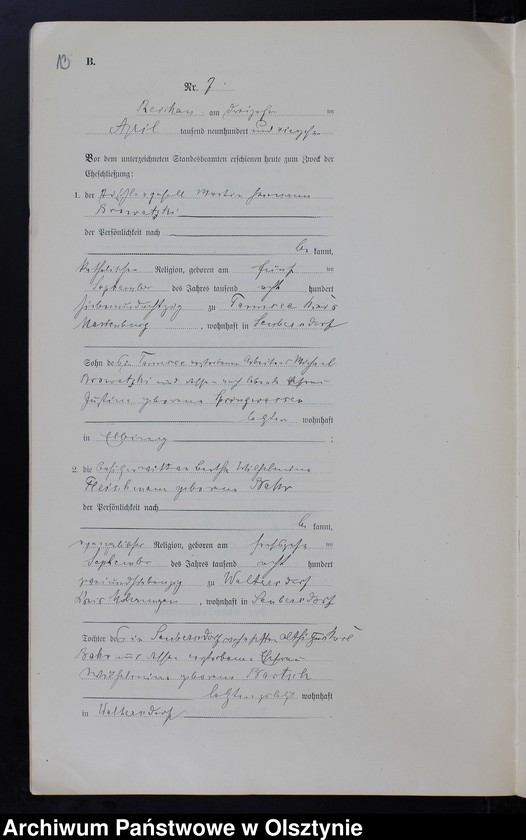 13
B.
Nr. 7
Reichau am dreizehn ten
April tausend neunhundert und vierzehn
Vor dem unterzeichneten Standesbeamten erschienen heute zum Zweck der
Eheschließung:
1. der Martin Hermann
Browatzki
der Persönlichkeit nach
be kannt,
katholischer Religion, geboren am fünf ten
September des Jahres tausend acht hundert
siebenundachtzig zu Tannsee Kreis
Marienburg, wohnhaft in Seubersdorf
Sohn des in Tannsee verstorbenen Arbeiters Michael
Browatzki und dessen noch lebende Ehefrau
Justine geborene
letztere wohnhaft
in Elbing ;
2. die Besitzerwitwe Bertha Wilhelmine
Fleischmann geborene
der Persönlichkeit nach
be kannt,
evangelischer Religion, geboren am sechszehn ten
September des Jahres tausend acht hundert
zweiundsiebenzig zu Waltersdorf
Kreis Mohrungen, wohnhaft in Seubersdorf
Tochter des in Seubersdorf Karl
und dessen verstorbene Ehefrau
Wilhelmine geborene Bartsch
wohnhaft
in Waltersdorf
Archiwum Państwowe w Olsztynie